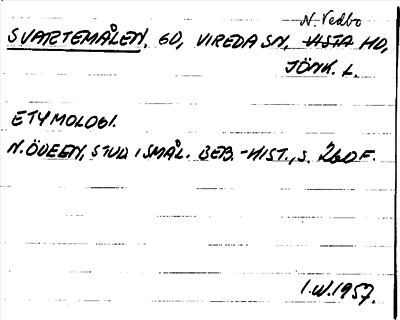 N. Vedbo
SVARTEMÅLEN, GD, VIREDA SN, VISTA HD,
JÖNK. L.
ETYMOLOGI.
N. ÖDEEN, STUD I SMÅL. BEB.-HIST., S. 260 F.
I.W. 1957.